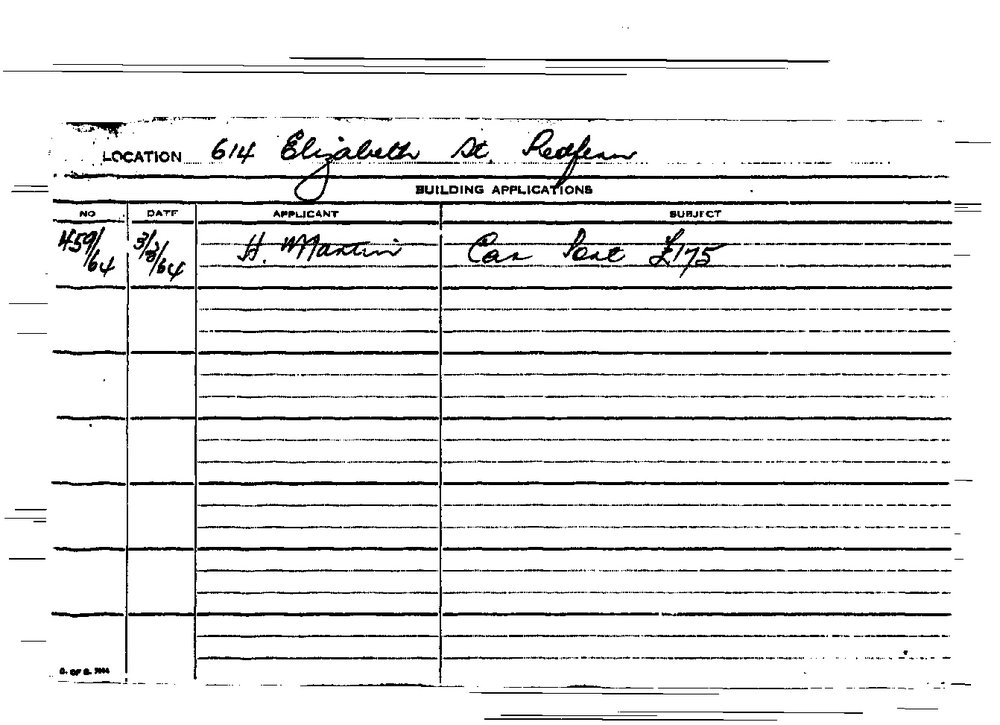 LOCATION 614 Elizabeth St. Redfern
BUILDING APPLICATIONS
NO DATE APPLICANT SUBJECT
459/64 3/3/64 H. Martin Car Port £175